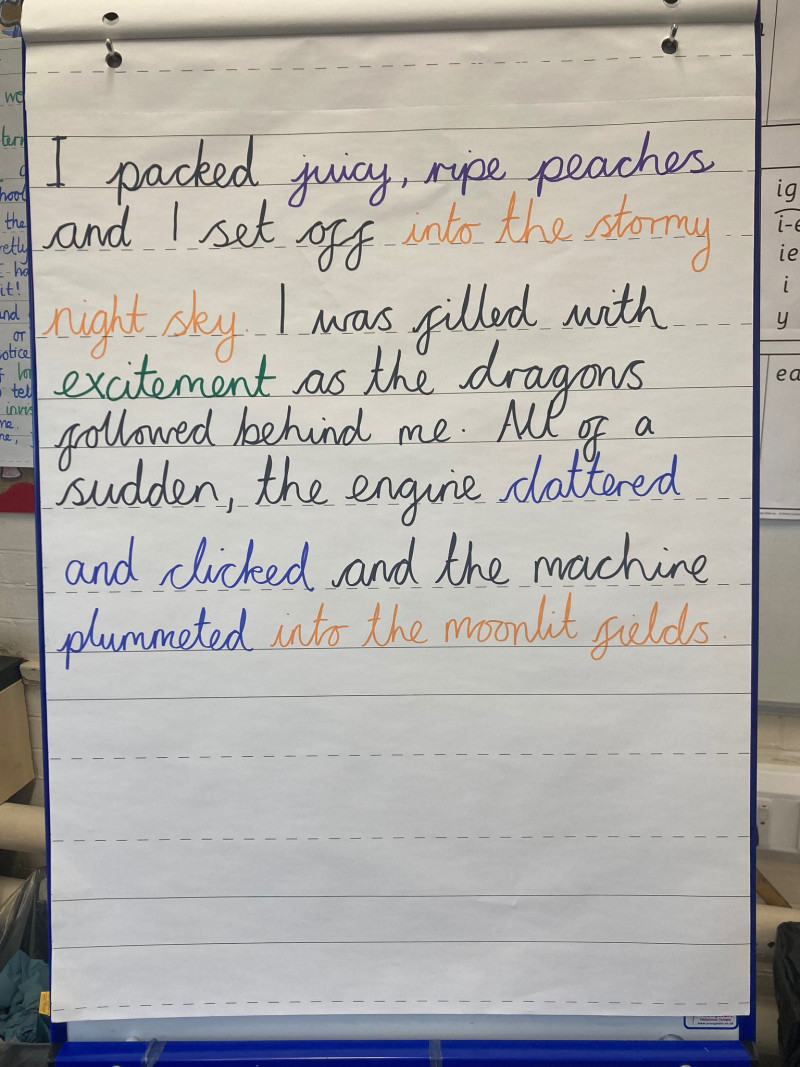 I packed juicy, ripe peaches
and I set off into the stormy
night sky. I was filled with
excitement as the dragons
followed behind me. All of a
sudden, the engine clattered
and clicked and the machine
plummeted into the moonlit fields.
the
it!
and
or
tell
me.
ig
i-e
ie
i
y
ea